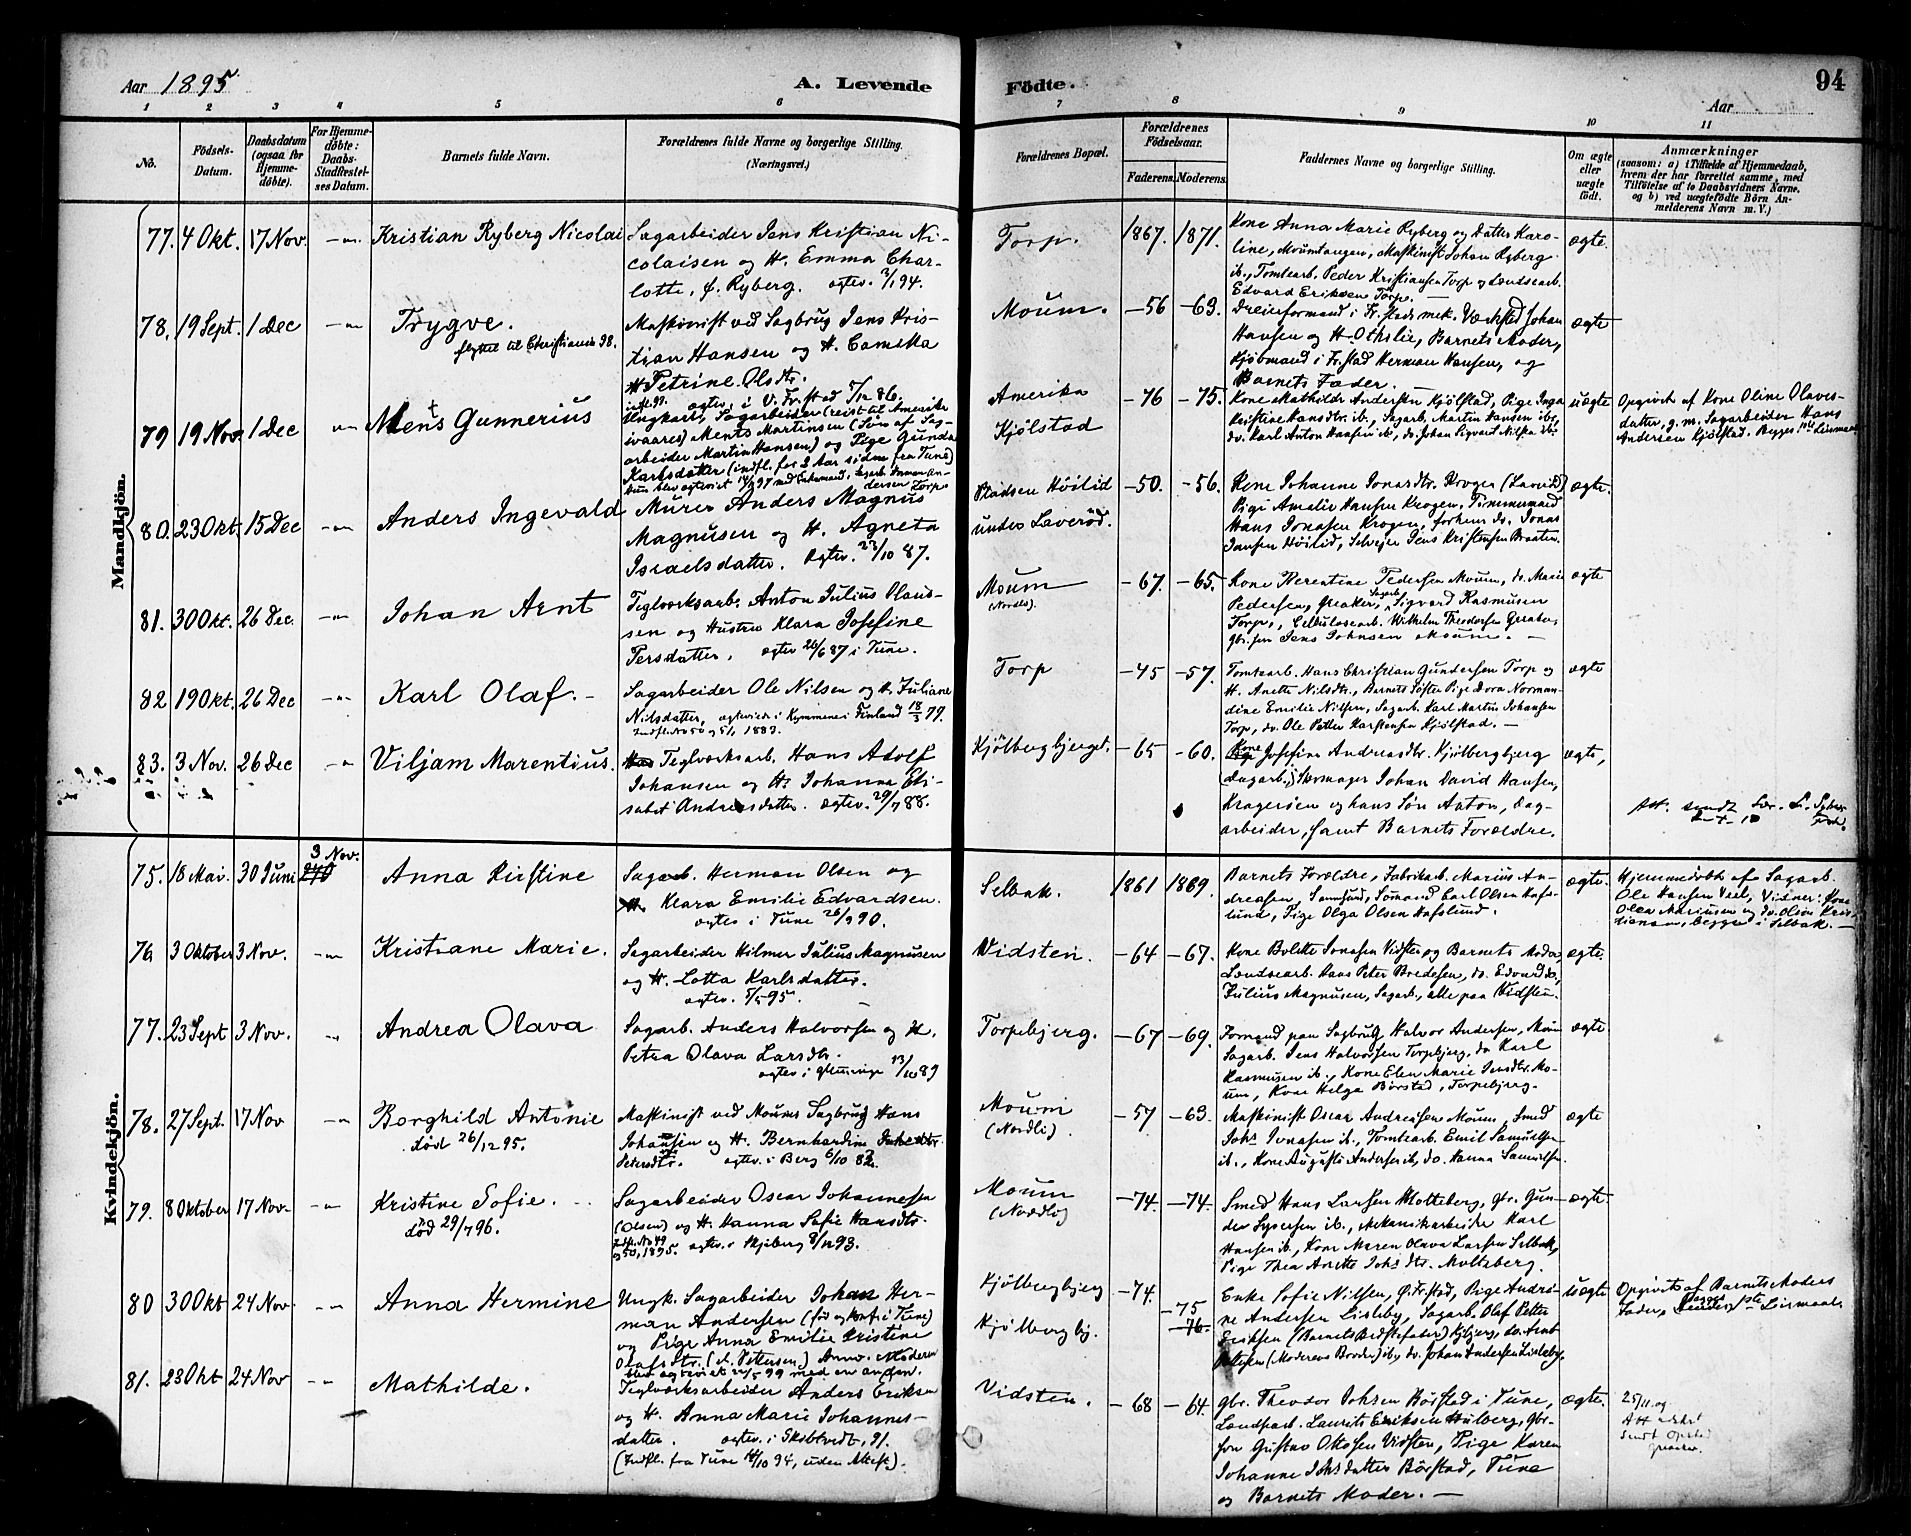 Aar 1895.
A. Levende
Födte.
94
Aar
1 2 3 4 5 6 7 8 9 10 11
No.
Födsels-
Datum.
Daabsdatum
(ogsaa for
Hjemme-
döbte).
For Hjemme-
döbte:
Daabs-
Stadfæstel-
ses Datum.
Barnets fulde Navn.
Forældrenes fulde Navne og borgerlige Stilling.
(Næringsvei.)
Forældrenes Bopæl.
Forældrenes
Födselsaar.
Faderens. Moderens.
Faddernes Navne og borgerlige Stilling.
Om ægte
eller
uægte
födt.
Anmærkninger
(saasom: a) i Tilfælde af Hjemmedaab,
hvem der har forrettet samme, med
Tilföielse af to Daabsvidners Navne.
og b) ved uægtefödte Börn An-
melderens Navn m. V.)
Mandkjön.
77. 4 Okt. 17 Nov. Kristian Ryberg Nicolai
Sagarbeider Jens Kristian Ni-
colaisen og H. Emma Char-
lotte, f. Ryberg.
Torp. 1867. 1871.
Kone Anna Marie Ryberg og Datter Karo-
line, Moumtangen, Maskinist Johan Ryberg
ib., Tomtearb. Peder Kristiansen Torp og Landsearb.
Edvard Eriksen Torp.
ægte.
78. 19 Sept. 1 Dec Trygve.
flyttet til Christiania 98.
Maskinist ved Sagbrug Jens Kris-
tian Hansen og H. Camilla
Petrine Olsdtr.
Moum. 56 63.
Dreierformand i Fr.stads mek. Værksted Johan
Hansen og H. Othilie, Barnets Moder,
Kjöbmand i Fr.stad Herman Hansen, og
Barnets Fader.
ægte
79 19 Nov. 1 Dec Ments Gunnerius
Ungkarl, Sagarbeider (reist til Amerika
ivaares) Ments Martinsen (Søn af Sag-
arbeider Martin Hansen) og Pige Gunda
Karlsdatter (indfl. for 2 Aar siden fra Tune)
Amerika
Kjølstad
76 75.
Kone Mathilde Andersen Kjølstad, Pige Inga
Kristine Hansdtr. ib., Sagarb. Martin Hansen ibd,
do. Karl Anton Hansen ib., do. Johan Sigvard Nilsen ib.
uægte
Opgivet af Kone Oline Olaves-
datter, g. m. Sagarbeider Hans
Andersen Kjølstad.
80. 23 Okt. 15 Dec Anders Ingevald
Murer Anders Magnus
Magnusen og H. Agneta
Israelsdatter. Ægtev. 23/10 87.
Pladsen Höilid
under Laveröd.
50. 56.
Kone Johanne Jonasdtr. Krogen (Larvik)
Pige Amalie Hansen Krogen, Tömmermand
Hans Jonasen Krogen, forhenv. do. Jonas
Jansen Höilid, Selveier Jens Kristensen Braaten.
ægte.
81. 30 Okt. 26 Dec. Johan Arnt
Teglværksarb. Anton Julius Olaus-
sen og Hustru Klara Josefine
Persdatter. ægtev 26/6 87 i Tune.
Moum
(Nordli).
67. 65.
Kone Berentine Pedersen Moum, do. Marie
Pedersen, Greaker, Sagarb. Sigvard Rasmusen
Torp, Cellulosearb. Wilhelm Theodorsen Greaker,
gbr.søn Jens Johnsen Moum.
ægte
82 19 Okt. 26 Dec Karl Olaf.
Sagarbeider Ole Nilsen og H. Juliane
Nilsdatter, ægteviede i Kymmene i Finland 18/3 79.
Indfl. No 50 og 51, 1883.
Torp 45 57.
Tomtearb. Hans Christian Gundersen Torp og
H. Anette Nilsdtr., Barnets Söster Pige Dora Norman-
dine Emilie Nilsen, Sagarb. Karl Martin Johansen
Torp, do. Ole Petter Karstensen Kjølstad.
ægte
83. 3 Nov. 26 Dec Viljam Marentius.
Teglværksarb. Hans Adolf
Johansen og H. Johanne Eli-
sabet Andreasdatter. ægtev. 29/7 88.
Kjölbergbjerget. 65 60.
Kone Josefine Andreasdtr. Kjölbergbjerg
(dagarb.), Skomager Johan David Hansen,
Krageröen og hans Søn Anton, Dag-
arbeider, samt Barnets Forældre.
ægte,
Att. sendt
Kvindekjön.
75. 18 Mai. 30 Juni 3 Nov. Anna Kirstine
Sagarb. Herman Olsen og
Klara Emilie Edvardsen.
ægtev i Tune 26/9 90.
Selbak. 1861 1869.
Barnets Forældre, Fabrikarb. Marius An-
dreasen, Sannesund, Sömand Carl Olsen Hafs-
lund, Pige Olga Olsen Hafslund.
ægte.
Hjemmedøbt af Sagarb.
Ole Hansen Veel, Vidner: Kone
Olea Mariusen og do. Oline Kris-
tiansen, begge i Selbak.
76 3 Oktober 3 Nov. Kristiane Marie.
Sagarbeider Hilmer Julius Magnusen
og H. Lotta Karlsdatter.
ægtev. 5/5 95.
Vidsten. 64 67.
Kone Bolette Jonasen Vidsten og Barnets Moder,
Landsearb. Hans Peter Bredesen, do. Edvard do,
Julius Magnusen, Sagarb., alle paa Vidsten.
ægte.
77. 23 Sept 3 Nov. Andrea Olava
Sagarb. Anders Halvorsen og H.
Petra Olava Larsdtr.
ægtev i Glemminge 13/10 89
Torpebjerg. 67 69.
Formand paa Sagbrug Halvor Andersen, Moum
Sagarb. Jens Halvorsen Torpebjerg, do Karl
Rasmusen ib., Kone Elen Marie Jensdtr. Mo-
um, Kone Helga Börstad, Torpebjerg.
ægte
78. 27 Sept. 17 Nov Borghild Antonie
död 26/12 95.
Maskinist ved Moums Sagbrug Hans
Johansen og H. Bernhardine
Petersdtr. ægtev. i Berg 6/10 82.
Moum
(Nordli).
57 63.
Maskinist Oscar Andreasen Moum, Smed
Johs Jonasen ib., Tomtearb. Emil Samuelsen
ib., Kone Augusta Andersen ib, do. Hanna Samuelsen.
ægte
79. 8 Oktober 17 Nov. Kristine Sofie.
död 29/7 96.
Sagarbeider Oscar Johannesen
(Olsen) og H. Hanna Sofie Hansdtr.
Indfl. No 49
og 50, 1895. ægtev. i Skjeberg 8/12 93.
Moum
(Nordli)
74. 74.
Smed Hans Larsen Molteberg, gbr. Gun-
der Syversen ib., Mekanikarbeider Karl
Hansen ib., Kone Maren Olava Larsen Selbak,
Pige Thea Anette Johsdtr. Molteberg.
ægte
80 30 Okt 24 Nov. Anna Hermine
Ungk. Sagarbeider Johan Her-
man Andersen (fød og konf. i Tune)
og Pige Anna Emilie Kristine
Olafsdtr. (A. Pettersen) Anm. Moderen
blev ægteviet 26/5 99 med en anden.
Kjölbergbjerg
Kjölbergbj.
74. 75 76.
Enke Sofie Nilsen, Ø. Fr.stad, Pige Andri-
ne Andersen Lisleby, Sagarb. Olaf Petter
Eriksen (Barnets Bedstefader) Kjbjerg, do. Arnt
Olafsen (Moderens Broder) ib, do. Johan Andersen Lisleby.
uægte
Opgivet af Barnets Moders
Fader, begges 1ste Leiermaal.
81. 23 Okt 24 Nov Mathilde.
Teglværksarbeider Anders Eriksen
og H. Anna Marie Johannes-
datter. ægtev. i Skibtvedt, 91.
(Indfl. fra Tune 14/10 94, uden Attest).
Vidsten. 68 64.
gbr. Theodor Johsen Börstad i Tune,
Landsarb. Laurits Eriksen Hulberg, gbr-
søn Gustav Ottosen Vidsten, Pige Karen
Johanne Johsdatter Börstad, Tune
og Barnets Moder.
ægte.
25/11 09
Att
sendt